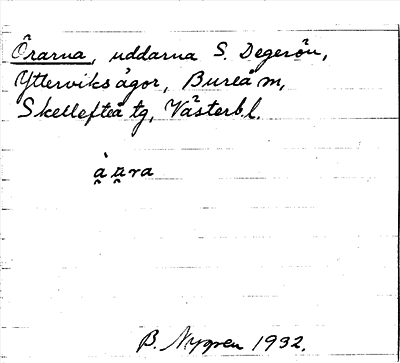 Örarna, uddarna S. Degerön,
Ytterviks ägor, Bureå sn,
Skellefteå tg, Västerbl.
B. Nygren 1932.